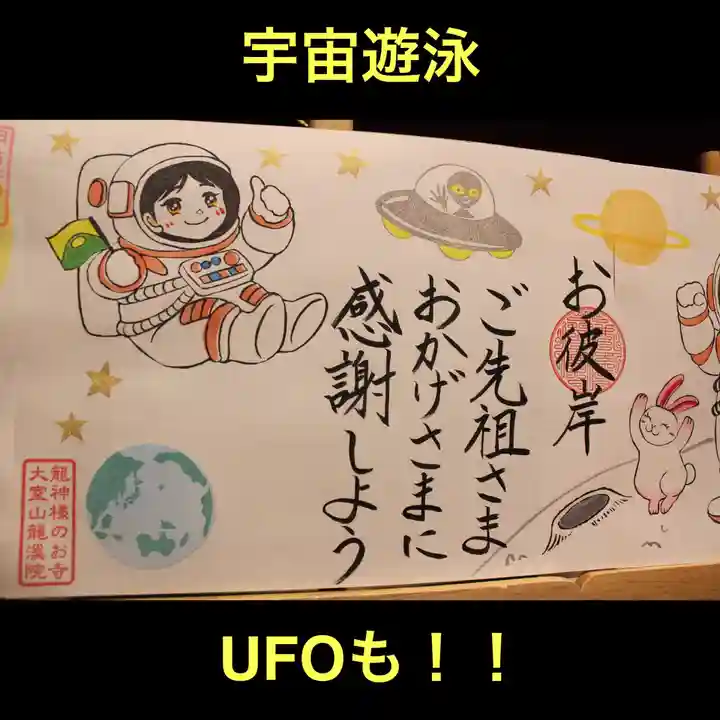 宇宙遊泳
お彼岸
ご先祖さま
おかげさまに
感謝しよう
龍神様のお寺
大室山龍渓院
UFOも！！